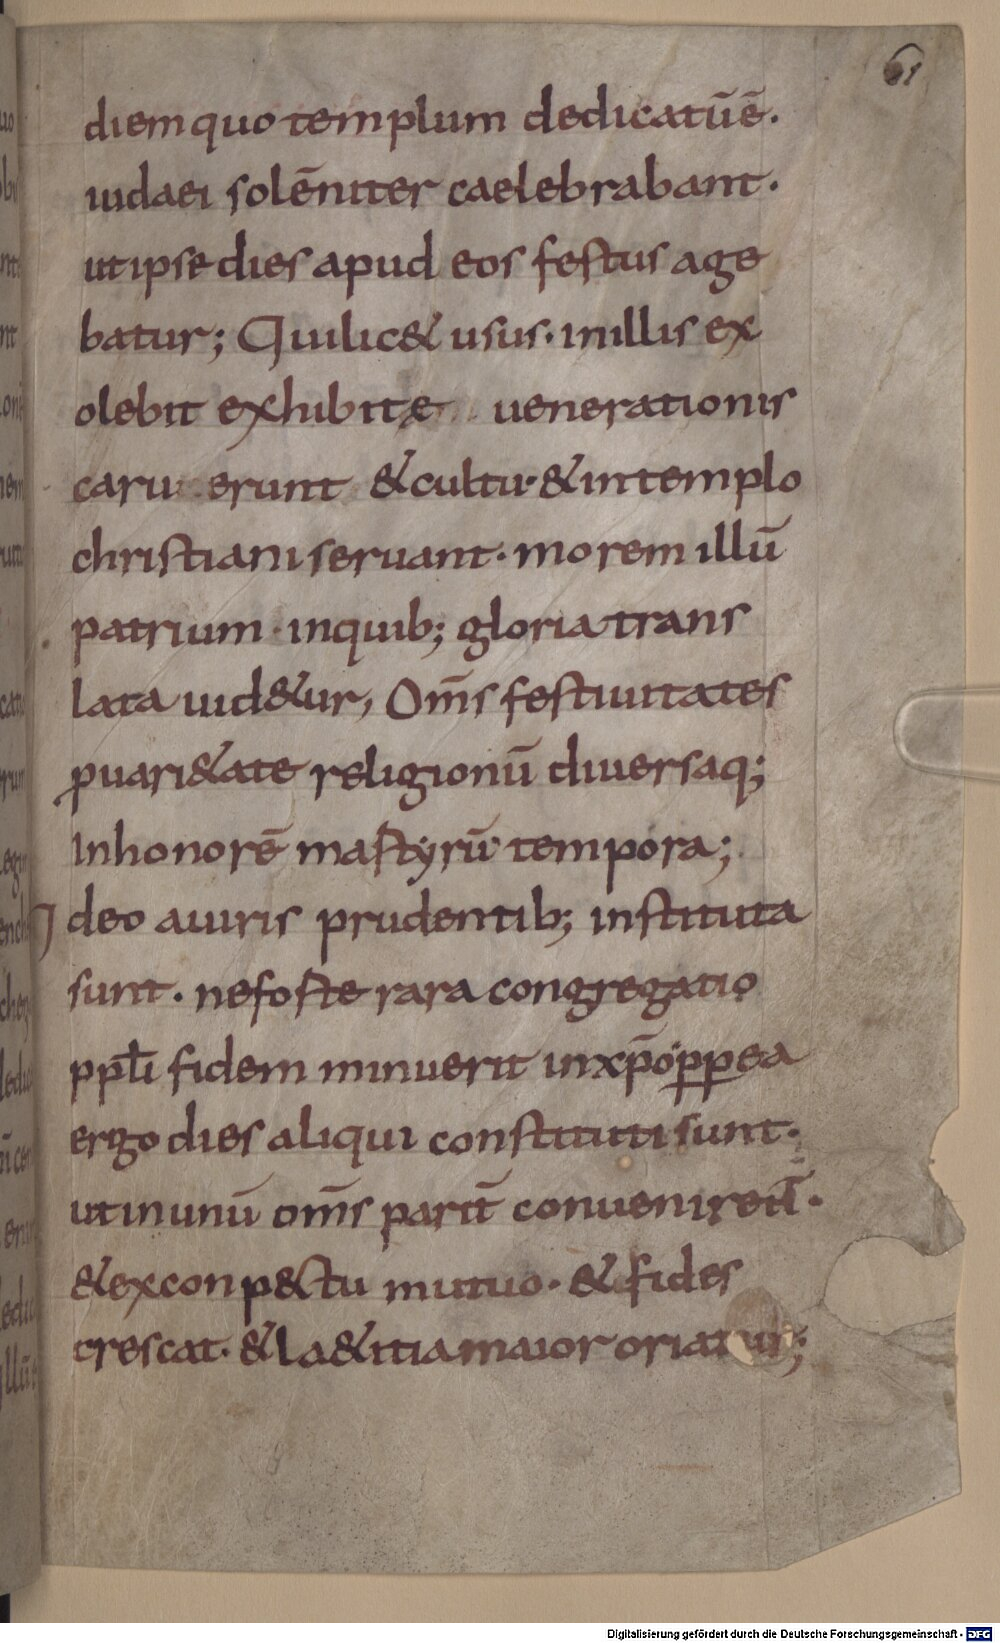 61
diem quo templum dedicatū ē.
iudaei solēniter caelebrabant.
ut ipse dies apud eos festus age
batur; Qui lic& usus. in illis ex
olebit exhibitæ uenerationis
caru erunt & cultu. & in templo
christiani seruant. morem illū
patrium. in quib; gloria trans
lata uid&ur, Om̄s festiuitates
p uari&ate religionū diuersaq;
In honorē mastyrū tempora;
deo a uiris prudentib; instituta
sunt. ne foste rara congregatio
ppl̄i fidem minuerit in xp̄o ppea
ergo dies aliqui constituti sunt.
ut in unū om̄s parit̄ conuenirent̄.
& ex conp&ctu mutuo. & fides
crescat. & la&itia maior oriatur;
Digitalisierung gefördert durch die Deutsche Forschungsgemeinschaft - DFG